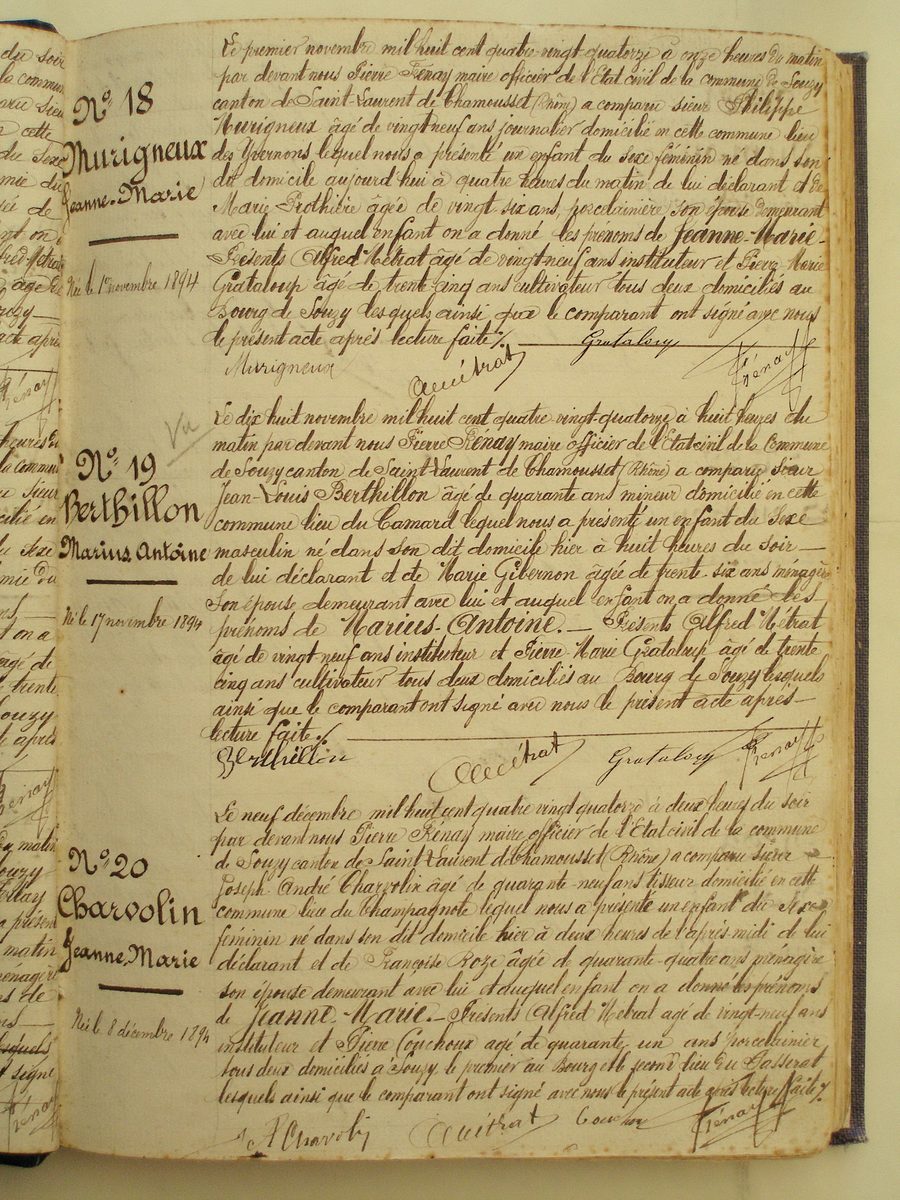 N° 18
Murigneux
Jeanne-Marie
Née le 1er novembre 1894
Le premier novembre mil huit cent quatre-vingt-quatorze à onze heures du matin
par devant nous Pierre Frénay maire officier de l'Etat civil de la commune de Souzy
canton de Saint-Laurent de Chamousset (Rhône) a comparu sieur Philippe
Murigneux âgé de vingt neuf ans journalier domicilié en cette commune lieu
des Yvernons lequel nous a présenté un enfant du sexe féminin né dans son
dit domicile aujourd'hui à quatre heures du matin de lui déclarant et de
Marie Prothière âgée de vingt six ans, porcelainière son épouse demeurant
avec lui et auquel enfant on a donné les prénoms de Jeanne-Marie-
Présents Alfred Métrat âgé de vingt-neuf ans instituteur et Pierre Marie
Grataloup âgé de trente-cinq ans cultivateur tous deux domiciliés au
Bourg de Souzy lesquels ainsi que le comparant ont signé avec nous
le présent acte après lecture faite ⁒
Murigneux
A Métrat
Grataloup
Frénay
Vu
N° 19
Berthillon
Marius Antoine
Né le 17 novembre 1894
Le dix huit novembre mil huit cent quatre vingt-quatorze à huit heures du
matin par devant nous Pierre Frénay maire officier de l'Etat civil de la Commune
de Souzy canton de Saint-Laurent de Chamousset (Rhône) a comparu sieur
Jean-Louis Berthillon âgé de quarante ans mineur domicilié en cette
commune lieu du Camard lequel nous a présenté un enfant du sexe
masculin né dans son dit domicile hier à huit heures du soir —
de lui déclarant et de Marie Gibernon âgée de trente-six ans ménagère
son épouse demeurant avec lui et auquel enfant on a donné les
prénoms de Marius-Antoine. — Présents Alfred Métrat
âgé de vingt neuf ans instituteur et Pierre-Marie Grataloup âgé de trente
cinq ans cultivateur tous deux domiciliés au Bourg de Souzy lesquels
ainsi que le comparant ont signé avec nous le présent acte après —
lecture faite ⁒
Berthillon
A Métrat
Grataloup
Frénay
N° 20
Charvolin
Jeanne Marie
Née le 8 décembre 1894
Le neuf décembre mil huit cent quatre vingt quatorze à deux heures du soir
par devant nous Pierre Frénay maire officier de l'Etat civil de la commune
de Souzy canton de Saint-Laurent de Chamousset (Rhône) a comparu sieur
Joseph André Charvolin âgé de quarante-neuf ans tisseur domicilié en cette
commune lieu du Champagnote lequel nous a présenté un enfant du sexe
féminin né dans son dit domicile hier à deux heures de l'après-midi de lui
déclarant et de Françoise Roze âgée de quarante-quatre ans ménagère
son épouse demeurant avec lui et duquel enfant on a donné les prénoms
de Jeanne-Marie. — Présents Alfred Métrat âgé de vingt-neuf ans
instituteur et Pierre Couchoux âgé de quarante un ans porcelainier
tous deux domiciliés à Souzy le premier au Bourg et le second lieu du Passerat
lesquels ainsi que le comparant ont signé avec nous le présent acte après lecture faite ⁒
Charvolin
A Métrat
Couchoux
Frénay